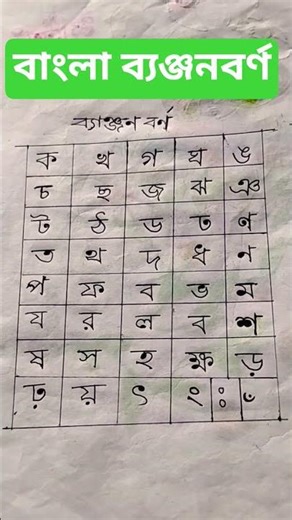 বাংলা ব্যঞ্জনবর্ণ
ব্যাঞ্জন বর্ন
ক খ গ ঘ ঙ
চ ছ জ ঝ ঞ
ট ঠ ড ঢ ণ
ত থ দ ধ ন
প ফ ব ভ ম
য র ল ব শ
ষ স হ ক্ষ ড়
ঢ় য় ৎ ং ঃ ঁ